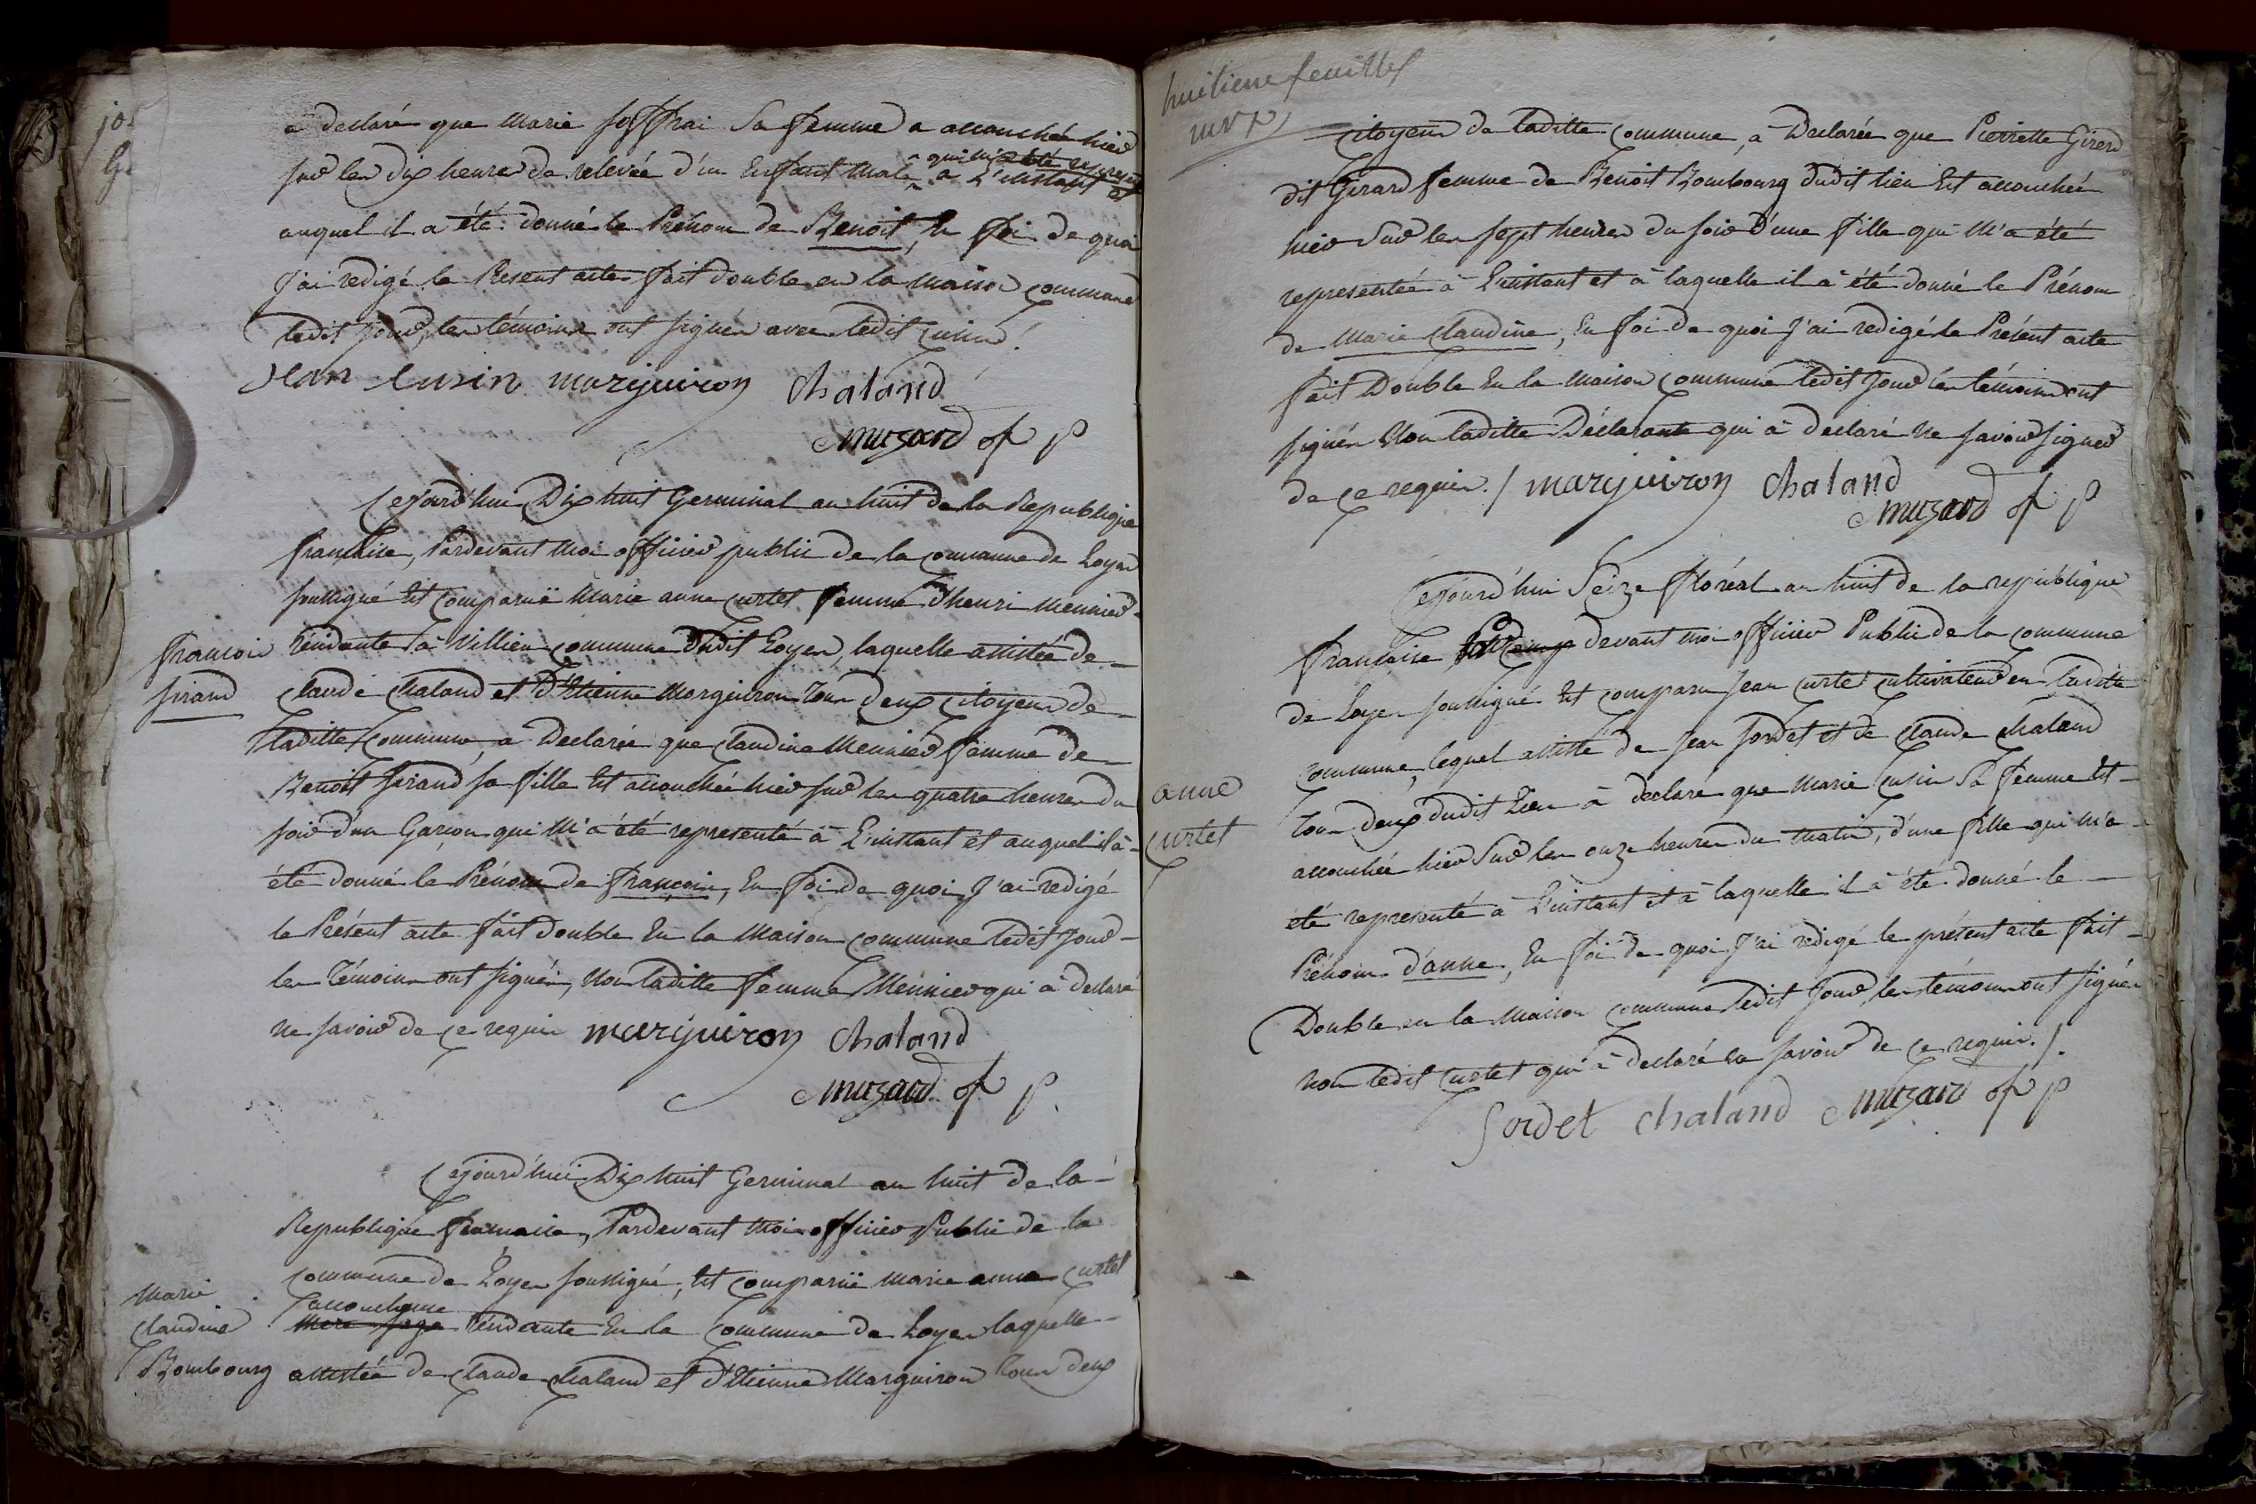 a declaré que Marie joffrai Sa femme a accouchée hier
sur les dix heures de relevée d'un Enfant male qui m'a été representé a L'instant et
auquel il a été donné le Prénom de Benoit, En foi de quoi
J'ai redigé le Present acte fait double en la Maison commune
ledit Jour, les témoins ont signés avec ledit Cusin.
Jean Cusin marquiron Chaland
muzard of p
Cejourd'hui Dix huit Germinal an huit de la Republique
francaise, Pardevant Moi officier public de la commune de Loyes
soussigné Est comparuë Marie anne curtet femme d'henri Meunier
françois
Résidante à Villieu commune dudit Loyes, laquelle assistée de
Claude Chaland et d'Etienne Marquiron tous deux citoyens de
laditte commune, a Declarée que Claudine Meunier femme de
Benoit sa fille Est accouchée hier sur les quatre heures du
soir d'un Garçon qui M'a été representé à L'instant et auquel il à
été donné le Prénom de françois, En foi de quoi J'ai redigé
le Présent acte fait double En la Maison commune ledit Jour
les Témoins ont signés, Non laditte femme Meunier qui à declaré
ne savoir de ce requise marquiron Chaland
muzard of p
Cejourd'hui Dix huit Germinal an huit de la
Republique francaise, Pardevant Moi officier Public de la
commune de Loyes soussigné, Est comparuë Marie anne Curtet
Marie
Claudine
Bombourg
accoucheuse
Mere sage Résidante En la Commune de Loyes laquelle
assistée de Claude Chaland et d'Etienne Marquiron tous deux
huitieme feuillet
citoyens de laditte commune, à Declarée que Pierrette Girerd
dit Girard femme de Benoit Bombourg dudit lieu Est accouchée
hier Sur les sept heures du soir d'une fille qui M'a été
representée à L'instant et à laquelle il à été donné le Prénom
de Marie Claudine, En foi de quoi J'ai redigé le Présent acte
fait Double En la Maison commune ledit Jour les témoins ont
signés Non laditte Déclarante qui à declaré Ne savoir signer
de ce requise./ marquiron Chaland
muzard of p
Cejourd'hui Seize floréal an huit de la republique
francaise devant moi officier Public de la commune
de Loyes soussigné Est comparu Jean Curtet cultivateur en laditte
commune, lequel assisté de Jean Sordet et de Claude Chaland
anne
curtet
tous deux dudit Lieu à declaré que Marie Cusin Sa femme Est
accouchée hier Sur les onze heures du matin, d'une fille qui M'a
été representé à L'instant et à laquelle il à été donné le
Prénom d'anne, En foi de quoi J'ai redigé le présent acte fait
Double en la Maison commune ledit Jour les témoins ont signés
non ledit curtet qui à declaré ne savoir de ce requis./.
Sordet Chaland muzard of p